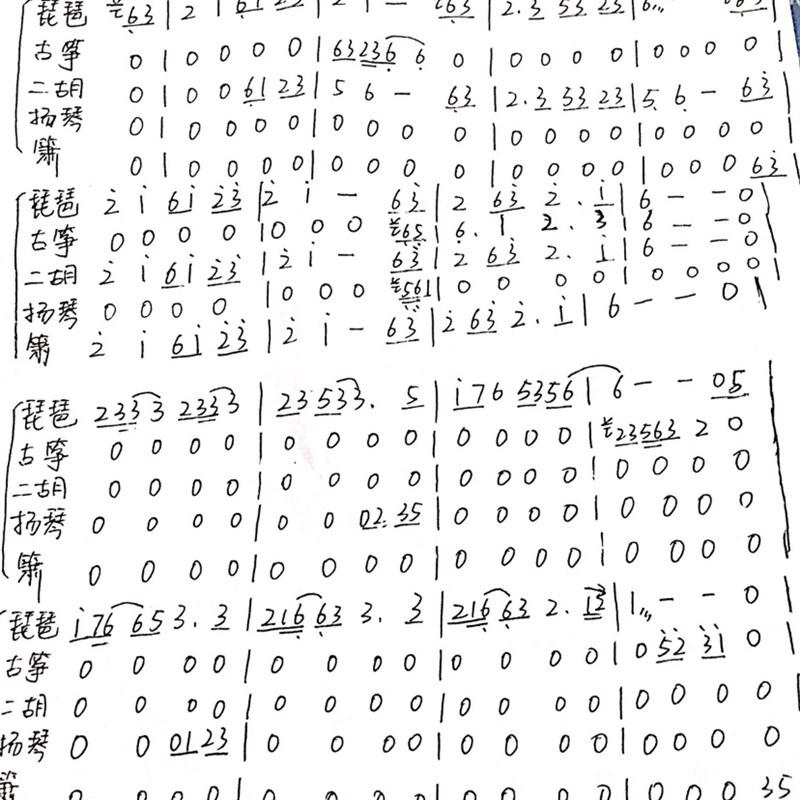 琵琶 63 | 2 1 61 23 | 2 1 - 63 | 2. 3 53 23 | 6 - - 063
古筝 0 | 0 0 0 0 | 63 23 6 6 0 | 0 0 0 0 | 0 0 0 0 |
二胡 0 | 0 0 61 23 | 5 6 - 63 | 2. 3 53 23 | 5 6 - 63 |
扬琴 0 | 0 0 0 0 | 0 0 0 0 | 0 0 0 0 | 0 0 0 0 |
箫 0 | 0 0 0 0 | 0 0 0 0 | 0 0 0 0 | 0 0 0 63 |
琵琶 2 1 61 23 | 2 1 - 63 | 2 63 2. 1 | 6 - - 0
古筝 0 0 0 0 | 0 0 0 65 | 6. 1 2. 3 | 6 - - 0
二胡 2 1 61 23 | 2 1 - 63 | 2 63 2. 1 | 6 - - 0
扬琴 0 0 0 0 | 0 0 0 561 | 0 0 0 0 | 0 0 0 0 |
箫 2 1 61 23 | 2 1 - 63 | 2 63 2. 1 | 6 - - 0 |
琵琶 233 3 233 3 | 23 533. 5 | 176 5356 | 6 - - 05
古筝 0 0 0 0 | 0 0 0 0 | 0 0 0 0 | 23563 2 0
二胡 0 0 0 0 | 0 0 0 0 | 0 0 0 0 | 0 0 0 0
扬琴 0 0 0 0 | 0 0 02. 35 | 0 0 0 0 | 0 0 0 0
箫 0 0 0 0 | 0 0 0 0 | 0 0 0 0 | 0 0 0 0
琵琶 176 65 3. 3 | 216 63 3. 3 | 216 63 2. 12 | 1 - - 0
古筝 0 0 0 0 | 0 0 0 0 | 0 0 0 0 | 0 52 31 0
二胡 0 0 0 0 | 0 0 0 0 | 0 0 0 0 | 0 0 0 0
扬琴 0 0 01 23 | 0 0 0 0 | 0 0 0 0 | 0 0 0 0
箫 0 0 0 0 | 0 0 0 0 | 0 0 0 0 | 0 0 0 35